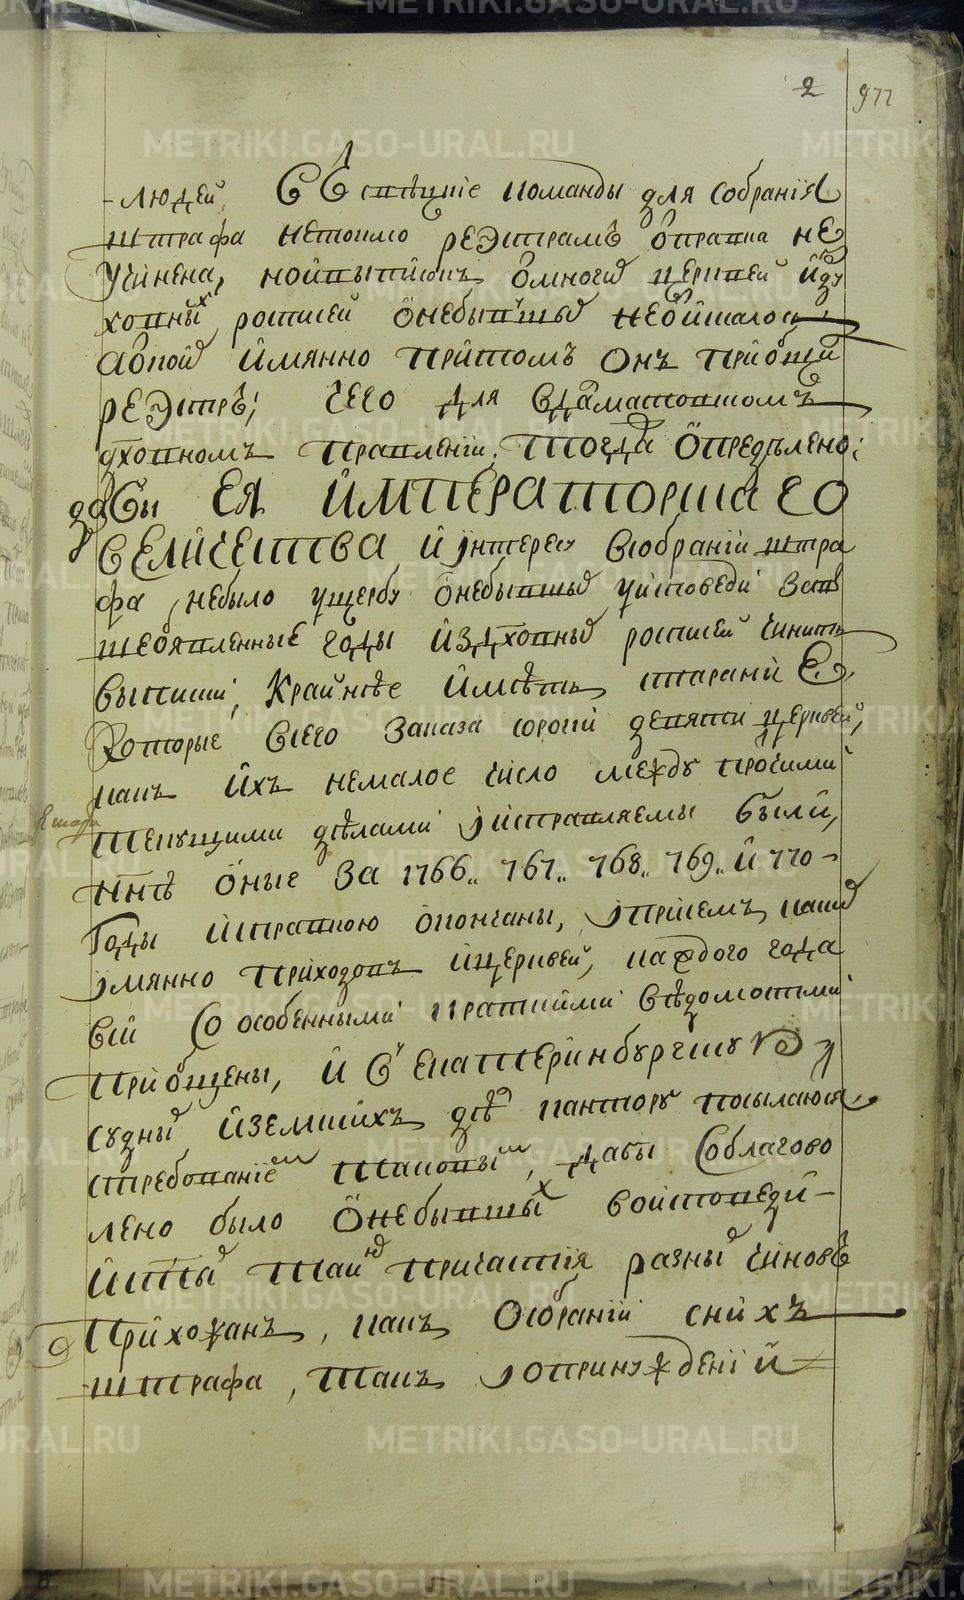 2 977
-людей, в светские команды для собрания
штрафа нетокмо реэстрамъ отправка не
учинена, но и выписокъ о многих церквей из ду
ховных росписей о небывших не взискалось
а о коих имянно при томъ онъ приобщил
реэстръ; чего для в даматовскомъ
духовномъ правлении, тогда определено:
дабы ЕЯ ИМПЕРАТОРСКАГО
ВЕЛИЧЕСТВА интересу в собрании штра
фа, небыло ущербу о небывших у исповеди за въ
шеобявленные годы из духовных росписей чинить
выписки, крайнее иметь старание,
которые всего заказа сорока девяти церквей,
какъ ихъ немалое число между прочими
текущими делами исправляемы были,
ныне оные за 1766.. 767.. 768.. 769.. и 770-
годы исправкою окончаны, и при чемъ, каких
имянно приходовъ и церквей, каждого года
вси со особенными краткими ведомостми
приобщены, и в Екатеринбургскую
судных и земскихъ делъ кантору посылаются
с требованием таковым, дабы соблаговo
лено было о небывших во исповеди-
и святых таин причастия разных чиновъ
прихожанъ, какъ о собрании с нихъ
штрафа, такъ и о принуждении